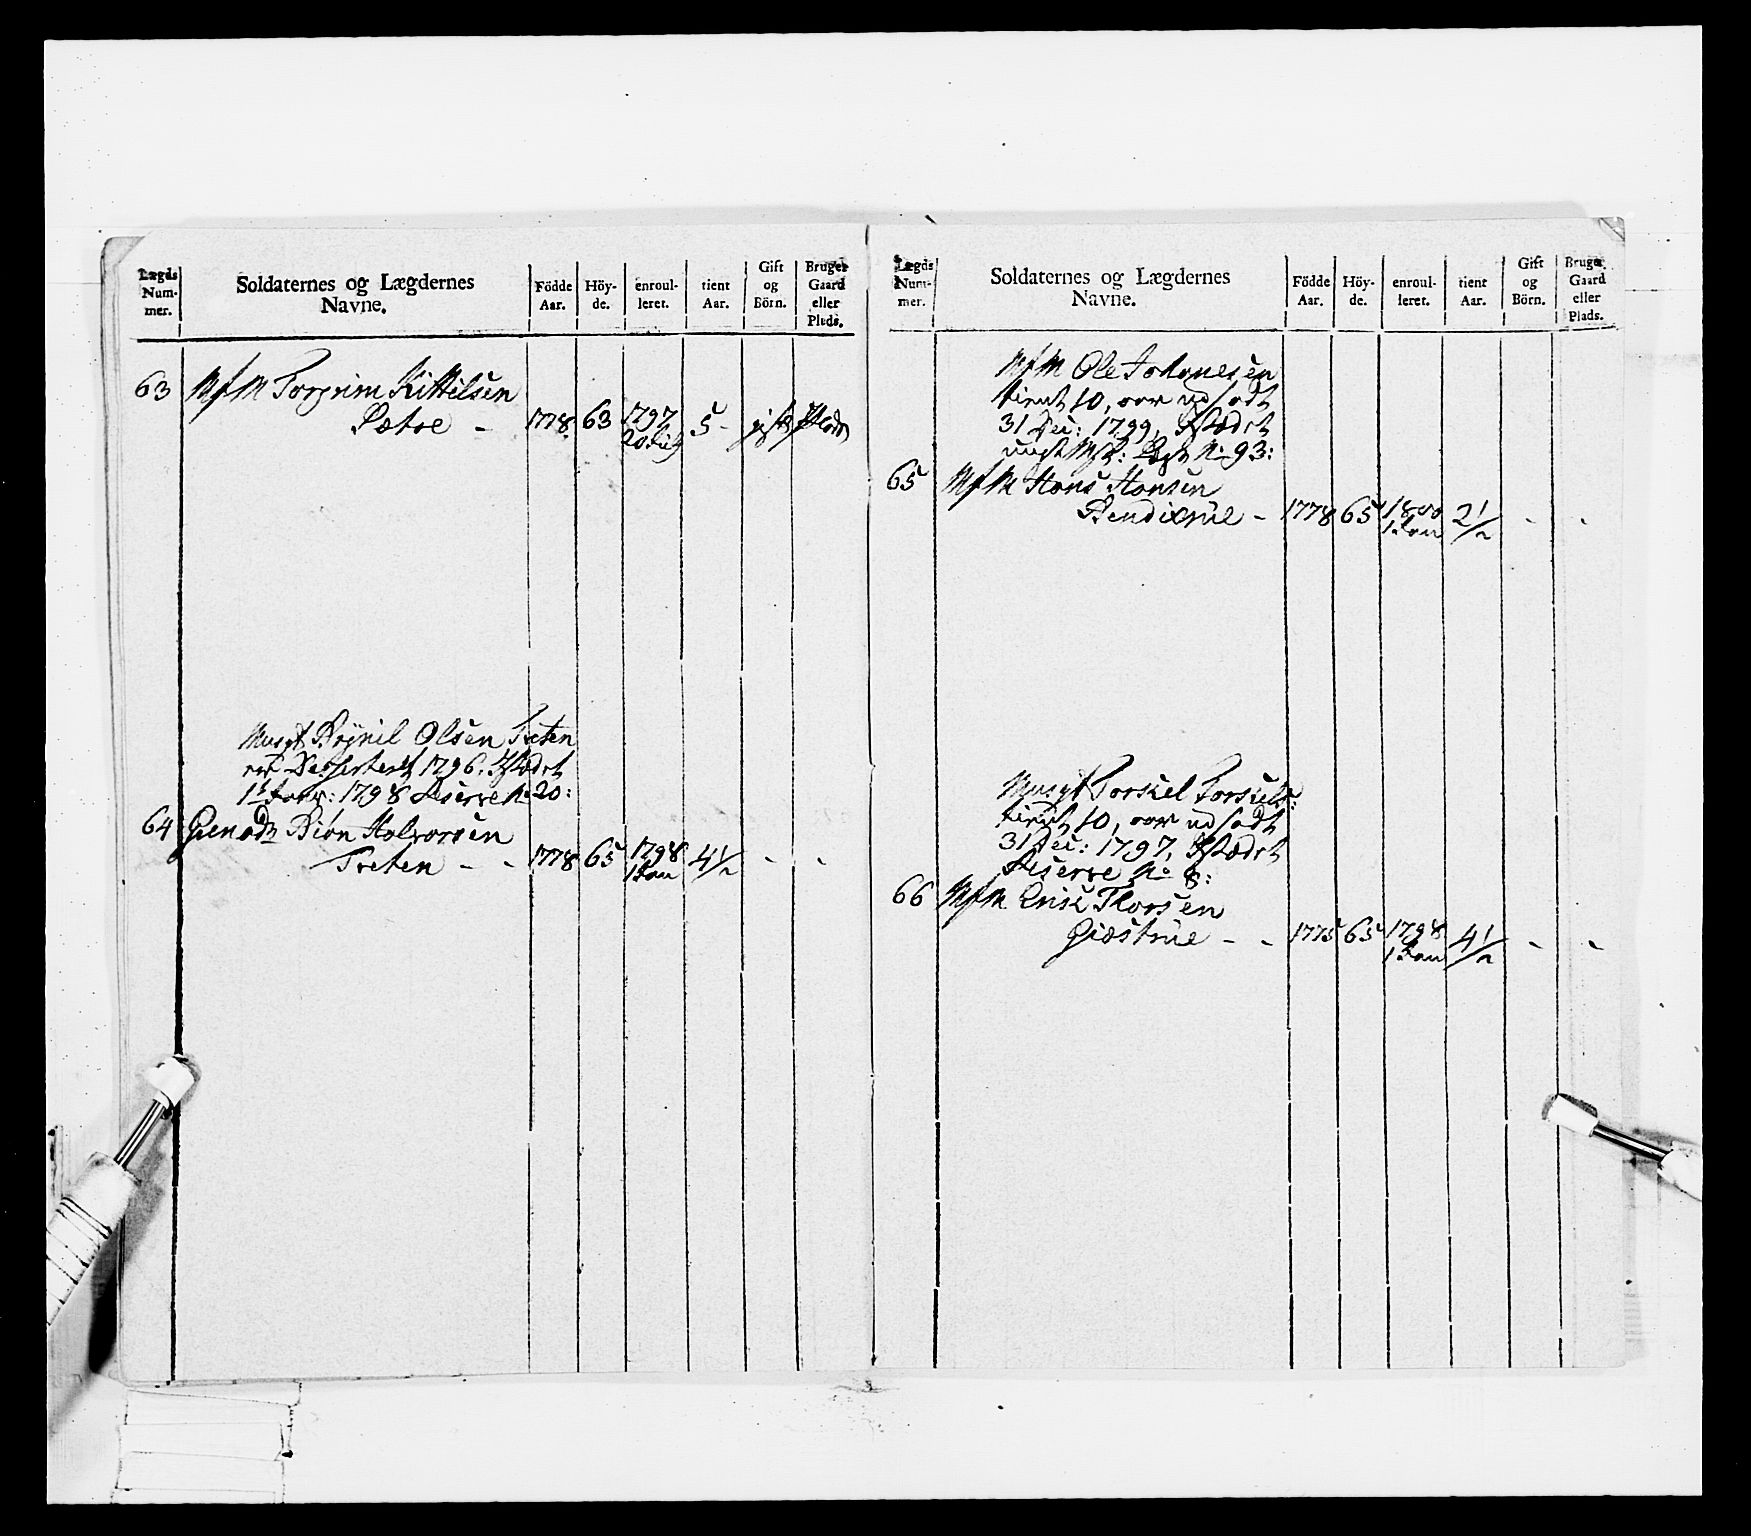 Lægds
Num-
mer.
Soldaternes og Lægdernes
Navne.
Födde
Aar.
Höy-
de.
enroul-
leret.
tient
Aar.
Gift
og
Börn.
Bruger
Gaard
eller
Plads.
63 MfM Torgrim Kittilsen
Sætre - 1778. 63 1797 5 - gift
20 Plads
Musqt Brynil Olsen Treten
er Deserteret 1796. Istædet
1te Janv: 1798 Reserve No 20:
64 Grenadr Biön Halvorsen
Treten - - 1778 65 1798 4 1/2 - -
1 Jan
Lægds
Num-
mer.
Soldaternes og Lægdernes
Navne.
Födde
Aar.
Höy-
de.
enroul-
leret.
tient
Aar.
Gift
og
Börn.
Bruger
Gaard
eller
Plads.
MfM Ole Johanesen
tient 10, aar udsadt
31 Dec: 1799, Istædet
No 93:
65 MfM Hans Hansen
Bendixrue - 1778 65 1800 2 1/2 - -
1 Jan
Musqt Torskel Torskels:
tient 10, aar udsadt
31 Dec: 1797, Istædet
Reserve No 8:
66 MfM Erisk Thorsen
Giæstrue - - 1775 65 1798 4 1/2 - -
1 Jan